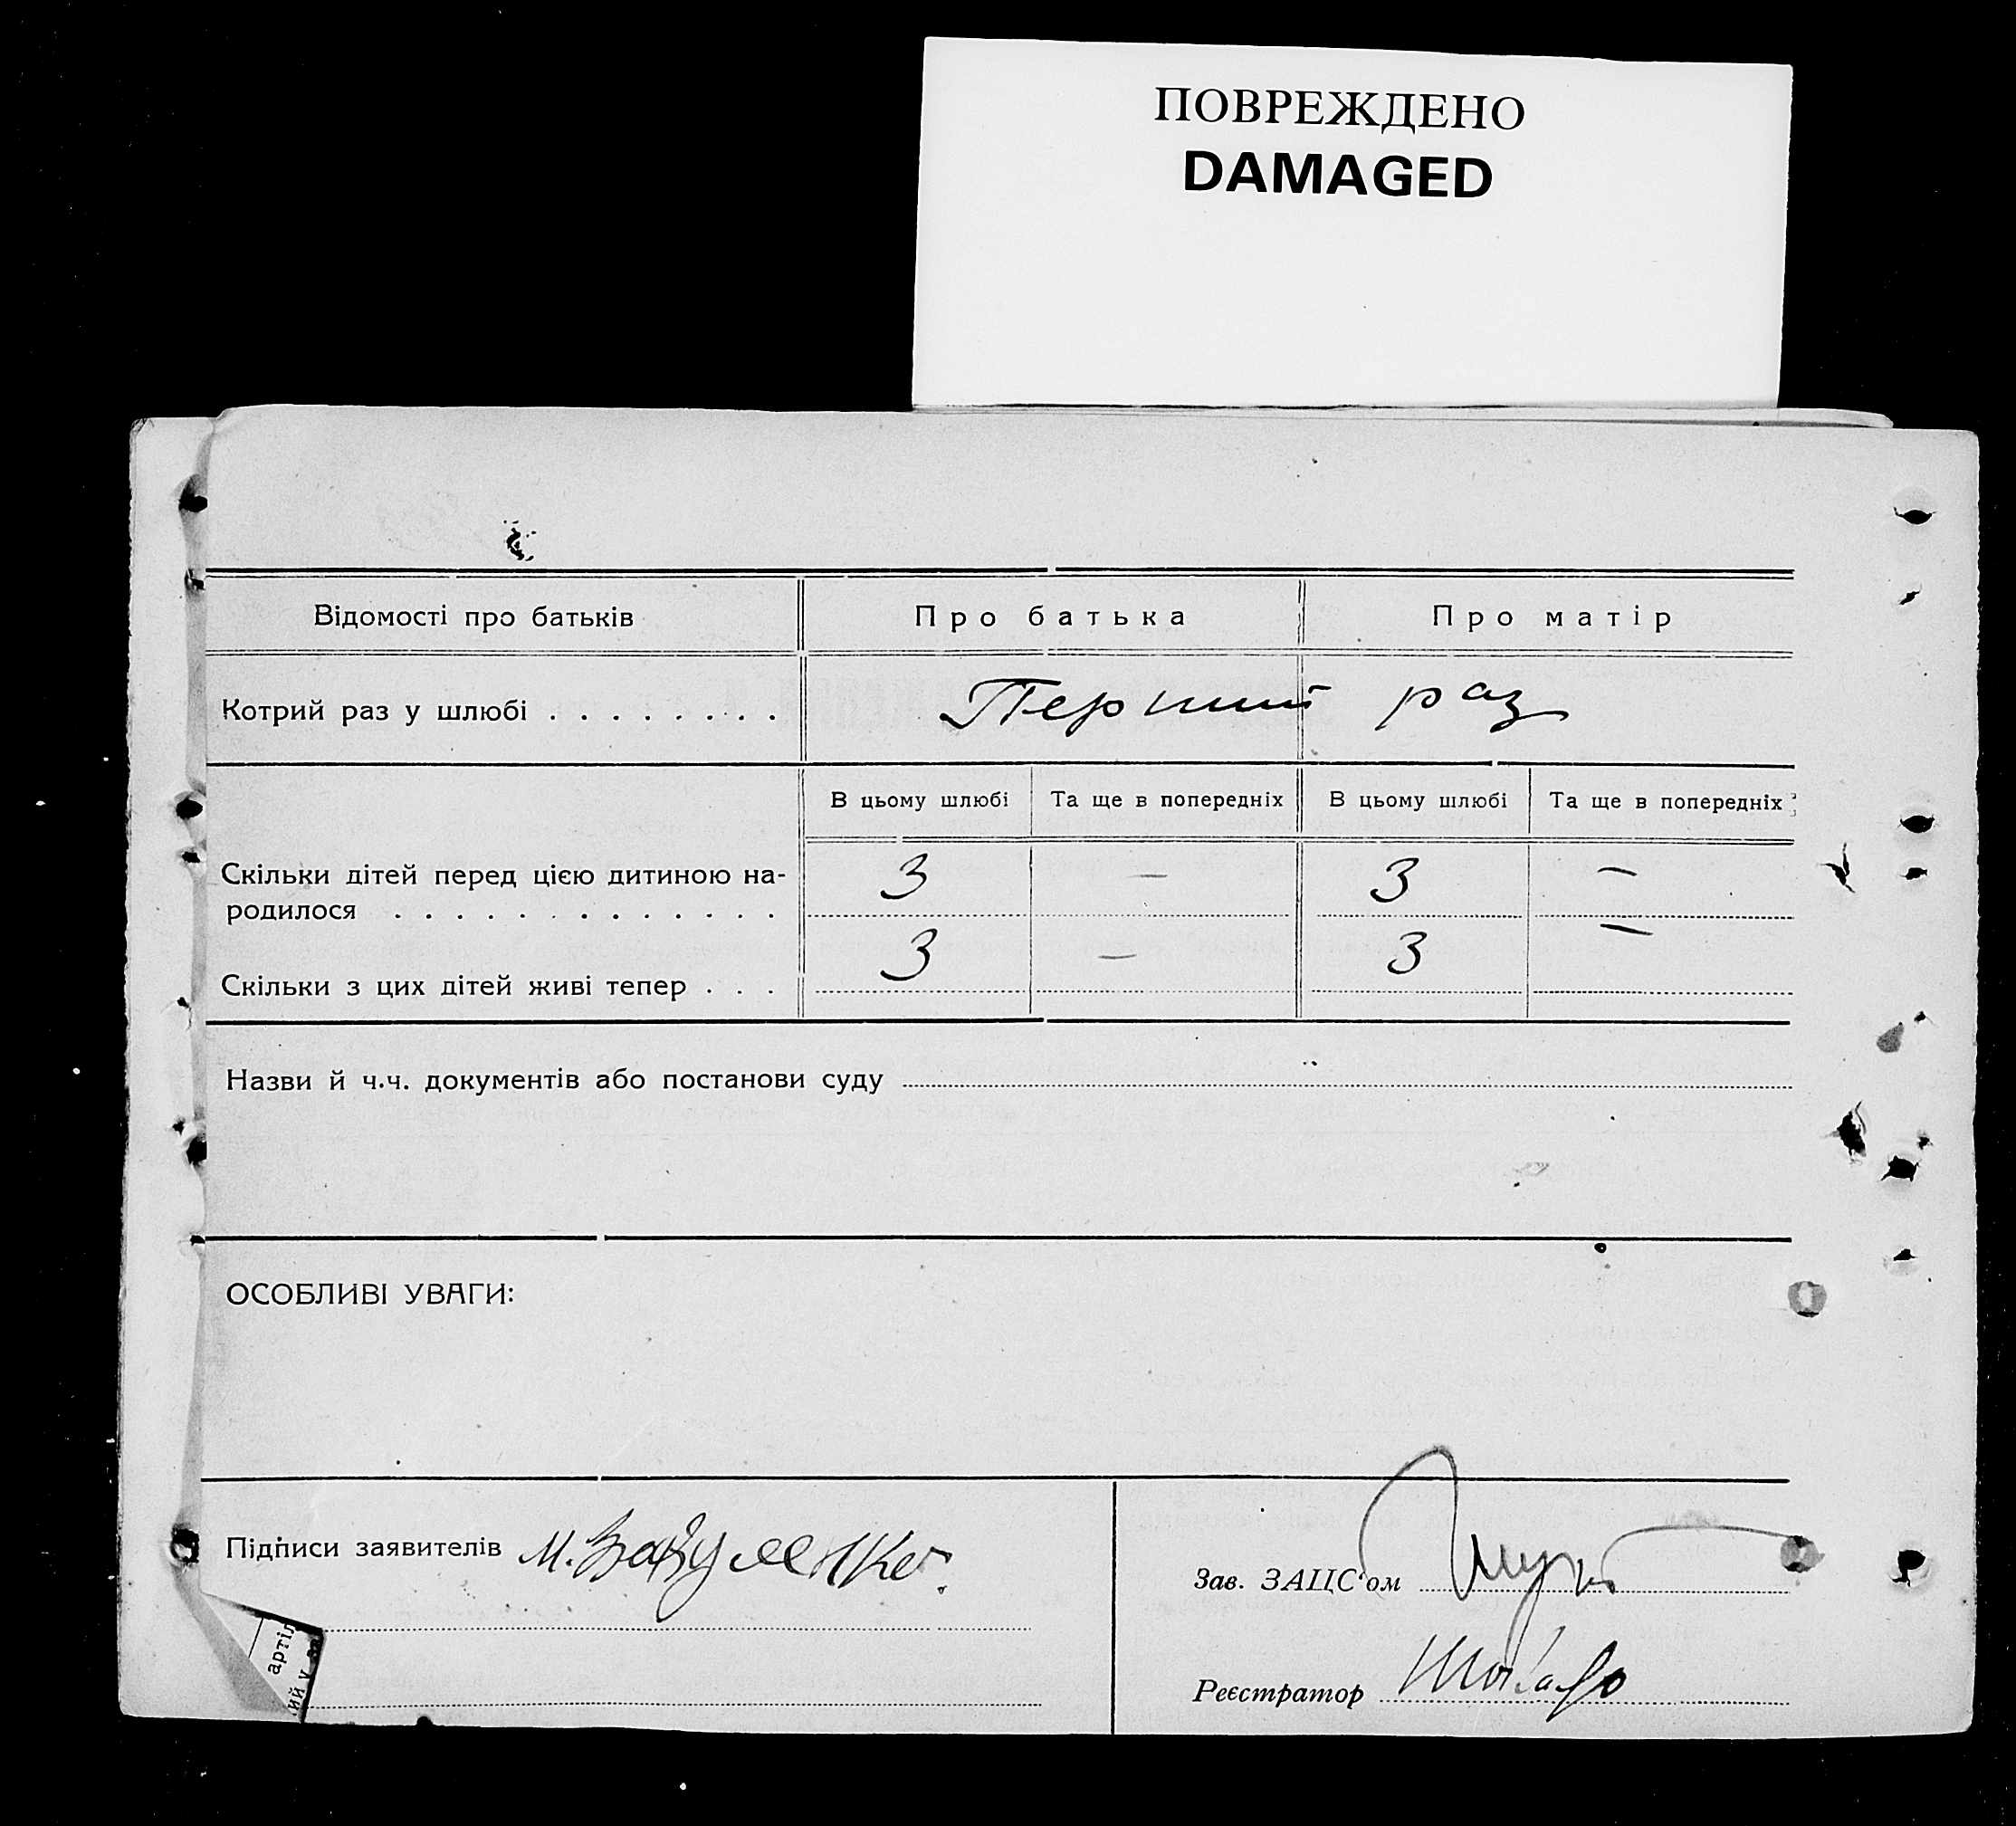 ПОВРЕЖДЕНО
DAMAGED
Відомості про батьків Про батька Про матір
Котрий раз у шлюбі . . . . . . . . Перший раз
В цьому шлюбі Та ще в попередніх В цьому шлюбі Та ще в попередніх
Скільки дітей перед цією дитиною на-
родилося . . . . . . . . . . . . . 3 — 3 —
Скільки з цих дітей живі тепер . . . 3 — 3 —
Назви й ч.ч. документів або постанови суду
ОСОБЛИВІ УВАГИ:
Підписи заявителів М. Вакуленко.
Зав. ЗАЦС'ом
Реєстратор
артіл
ий у